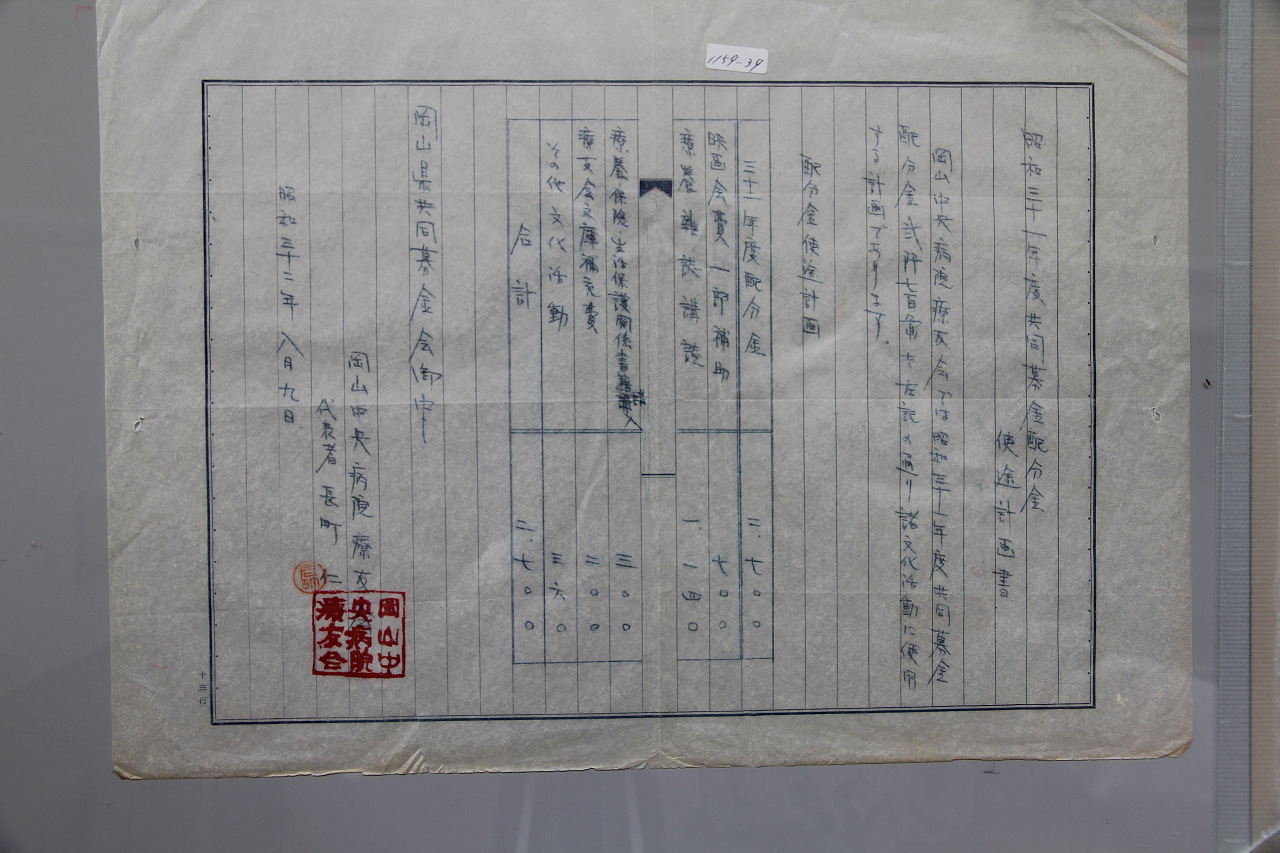 1159-39
昭和三十一年度共同募金配分金
使途計画書
岡山中央病院療友会では昭和三十一年度共同募金
配分金弐阡七百円を左記の通り諸文化活動に使用
する計画であります。
配分金使途計画
三十一年度配分金 二.七〇〇
映画会費一部補助 七〇〇
療養雑誌購読 一.一四〇
療養・保険・生活保護関係書籍購入 三〇〇
療友会文庫補充費 二〇〇
その他文化活動 三六〇
合計 二.七〇〇
岡山県共同募金会御中
岡山中央病院療友会
代表者 長町 仁
昭和三十二年八月九日.
岡山中
央病院
療友会
十三行